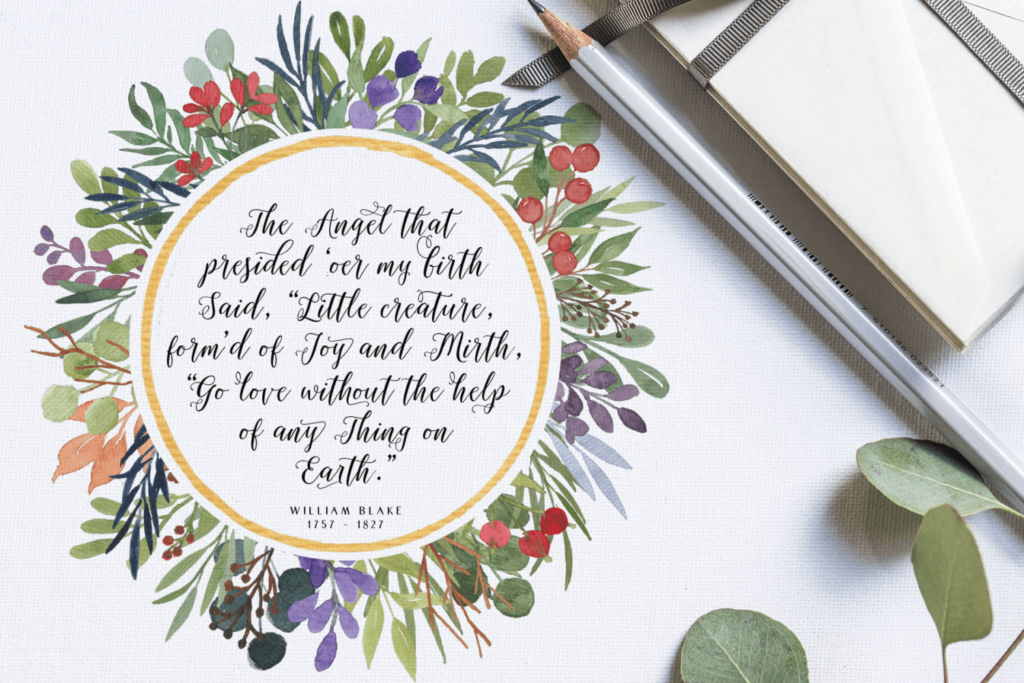 The Angel that
presided ‘oer my birth
Said, “Little creature,
form’d of Joy and Mirth,
“Go love without the help
of any Thing on
Earth.”
WILLIAM BLAKE
1757 - 1827